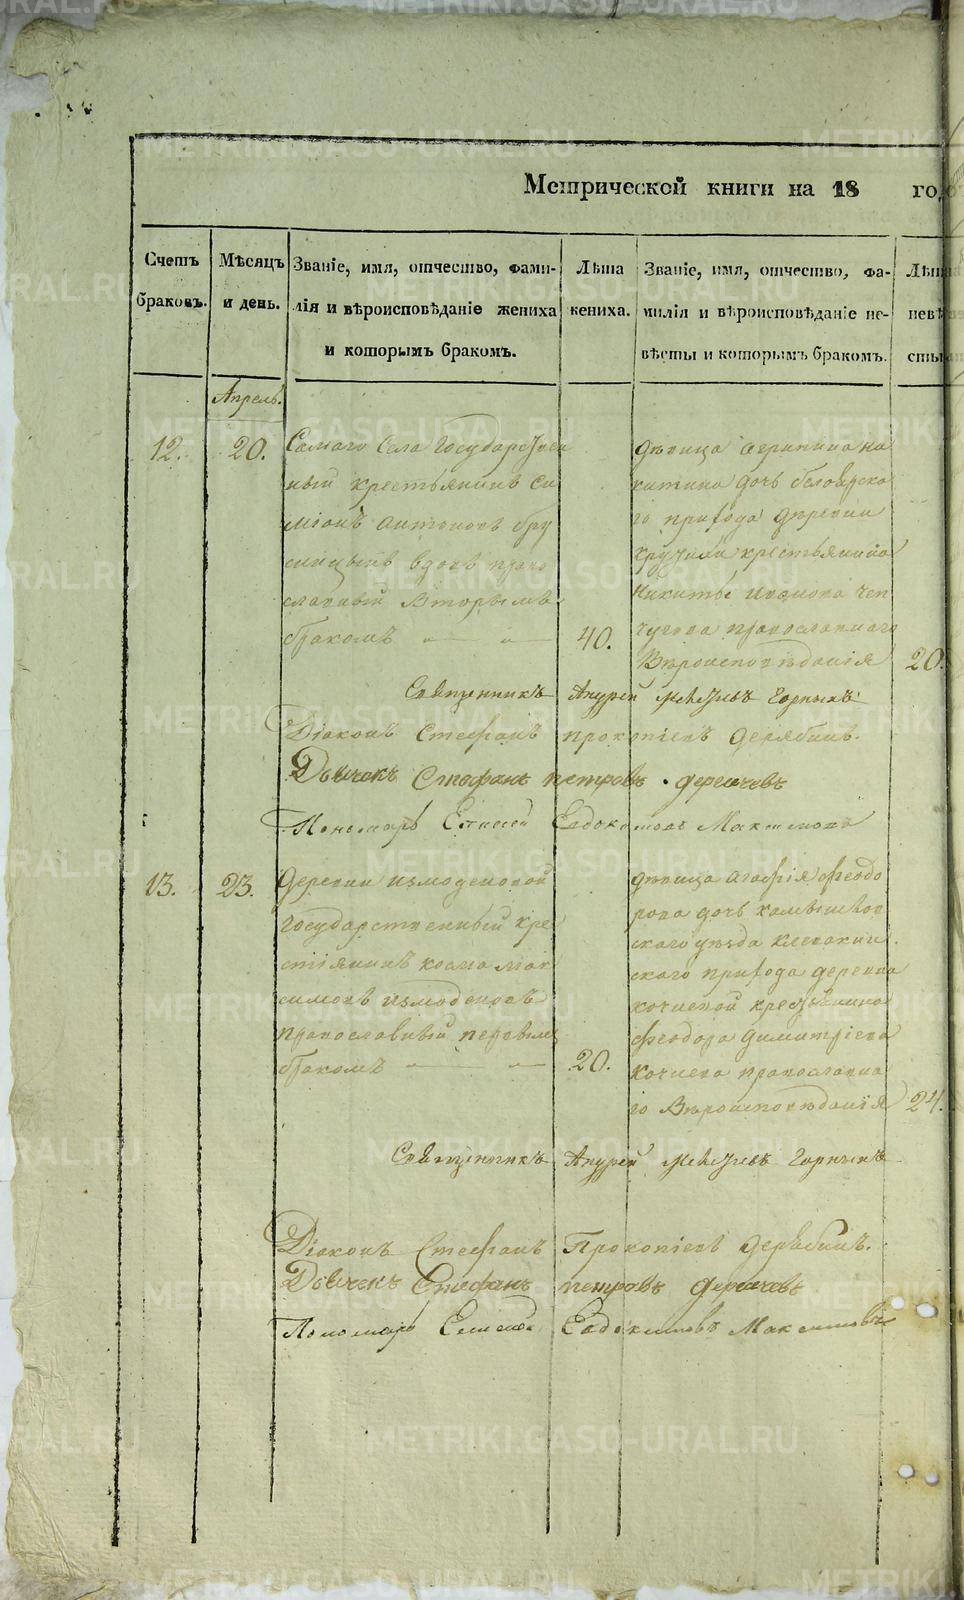 Метрической книги на 18 год
Счетъ браковъ.
Мѣсяцъ и день.
Званіе, имя, отчество, фами-
лія и вѣроисповѣданіе жениха
и которымъ бракомъ.
Лѣта
жениха.
Званіе, имя, отчество, фа-
милія и вѣроисповѣданіе не-
вѣсты и которымъ бракомъ.
Лѣта
невѣ
сты
Апрель.
12.
20.
Самаго Села Государствен
ный крестьянинъ Си
меонъ антоновъ бру
сницынъ вдовъ право
славный Вторымъ
бракомъ
40.
дѣвица агрипина на
китина дочь беловрско
го прихода деревни
крестьянина
Никиты Иванова чеп
чугова православнаго
Вѣроисповѣданія
20.
Священникъ Андрей Горныхъ
Діаконъ Стефанъ прокопіевъ дерябинъ.
Дьячекъ Стефанъ петровъ дергачевъ
Пономарь Елисей Евдокимовъ Максимовъ
13.
23.
деревни измоденовой
государственный кре
стіянинъ косма мак
симовъ измоденовъ
православный первымъ
бракомъ
20.
дѣвица агафія феодо
рова дочь камышлов
скаго уѣзда клевакин
скаго прихода деревни
кочневой крестьянина
феодора димитріева
кочнева православна
го Вѣроисповѣданія
24.
Священникъ Андрей Горныхъ
Діаконъ Стефанъ Прокопіевъ дерябинъ.
Дьячекъ Стефанъ петровъ дергачевъ
Пономарь Елисей Евдокимовъ Максимовъ
METRIKI.GASO-URAL.RU